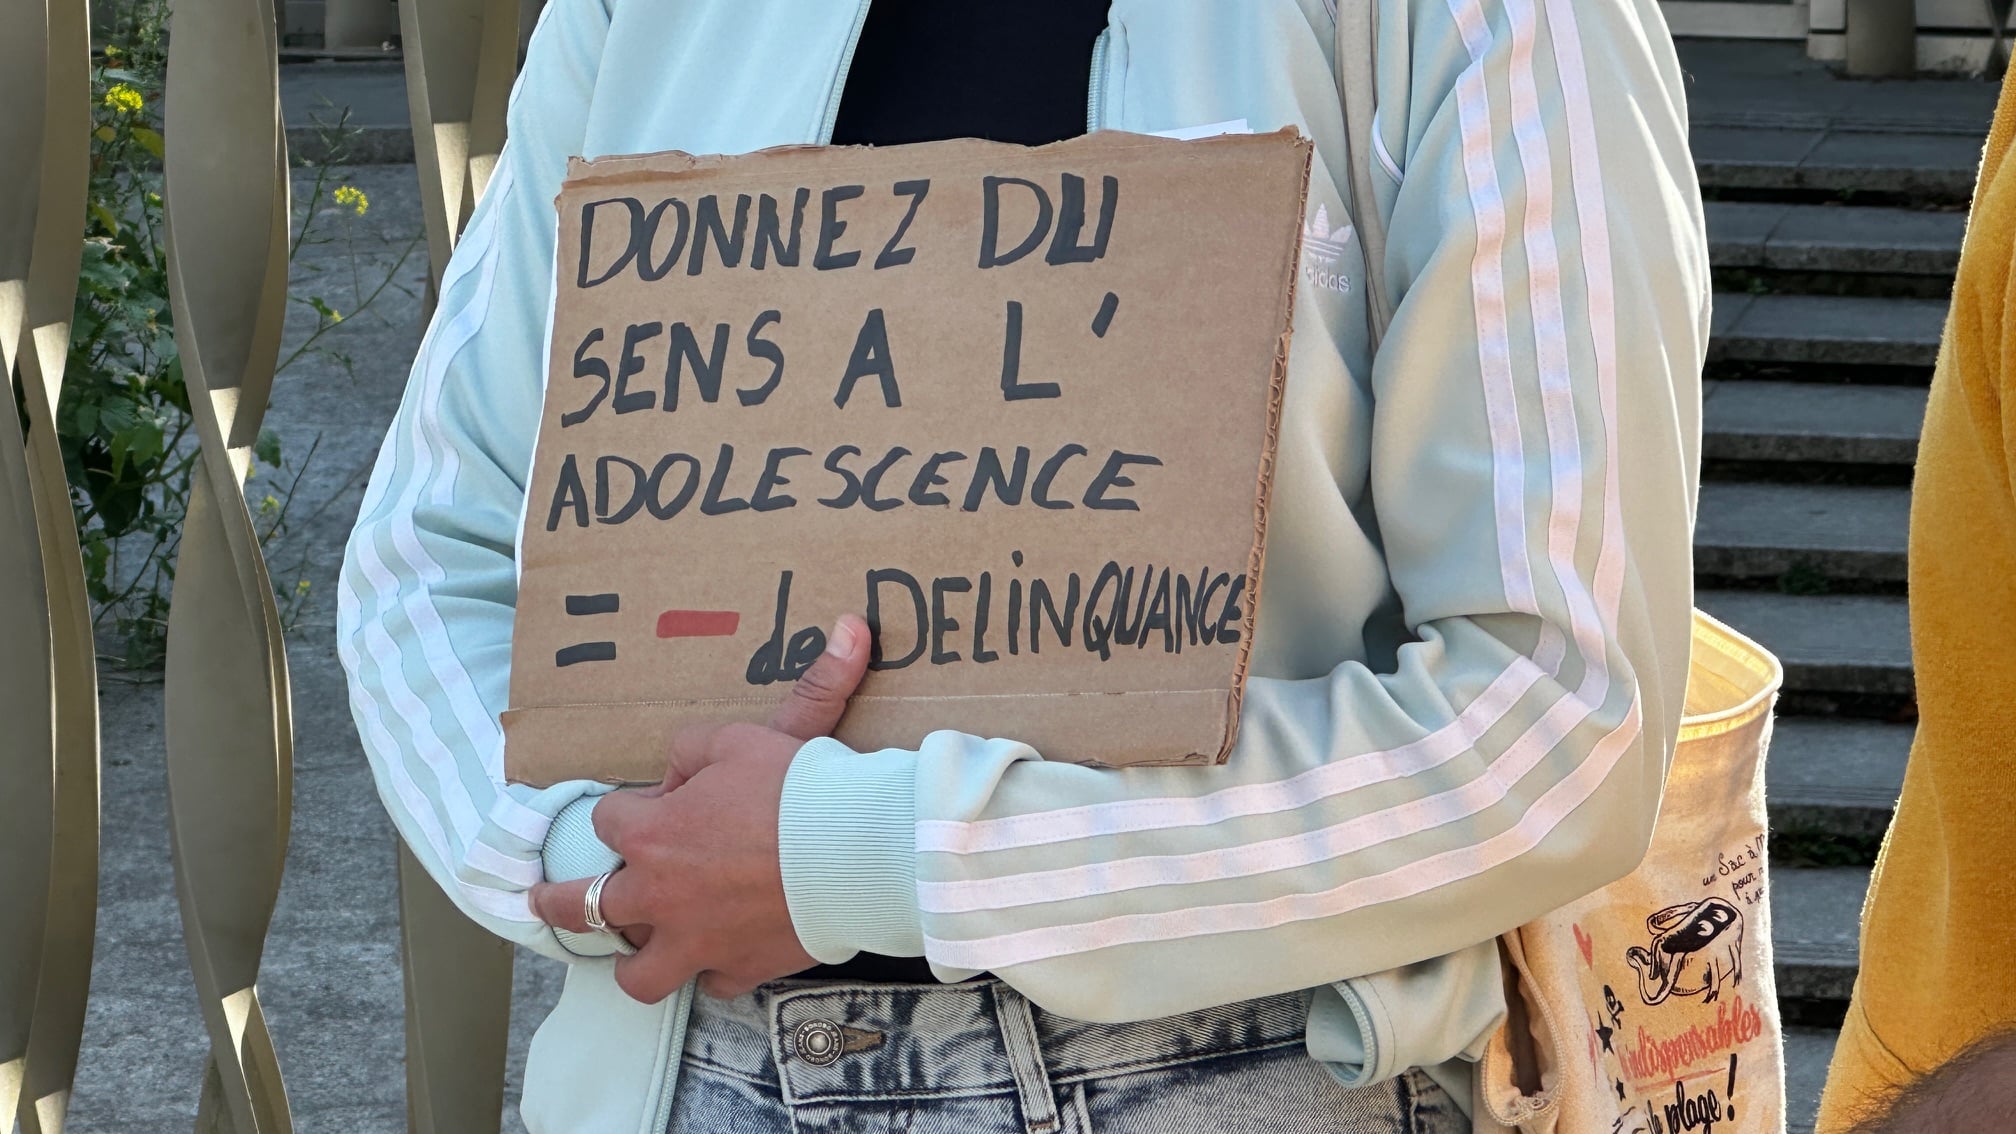 DONNEZ DU
SENS A L'
ADOLESCENCE
= - de DELiNQUANCE
adidas
un Sac à
pour
indispensables
de plage!